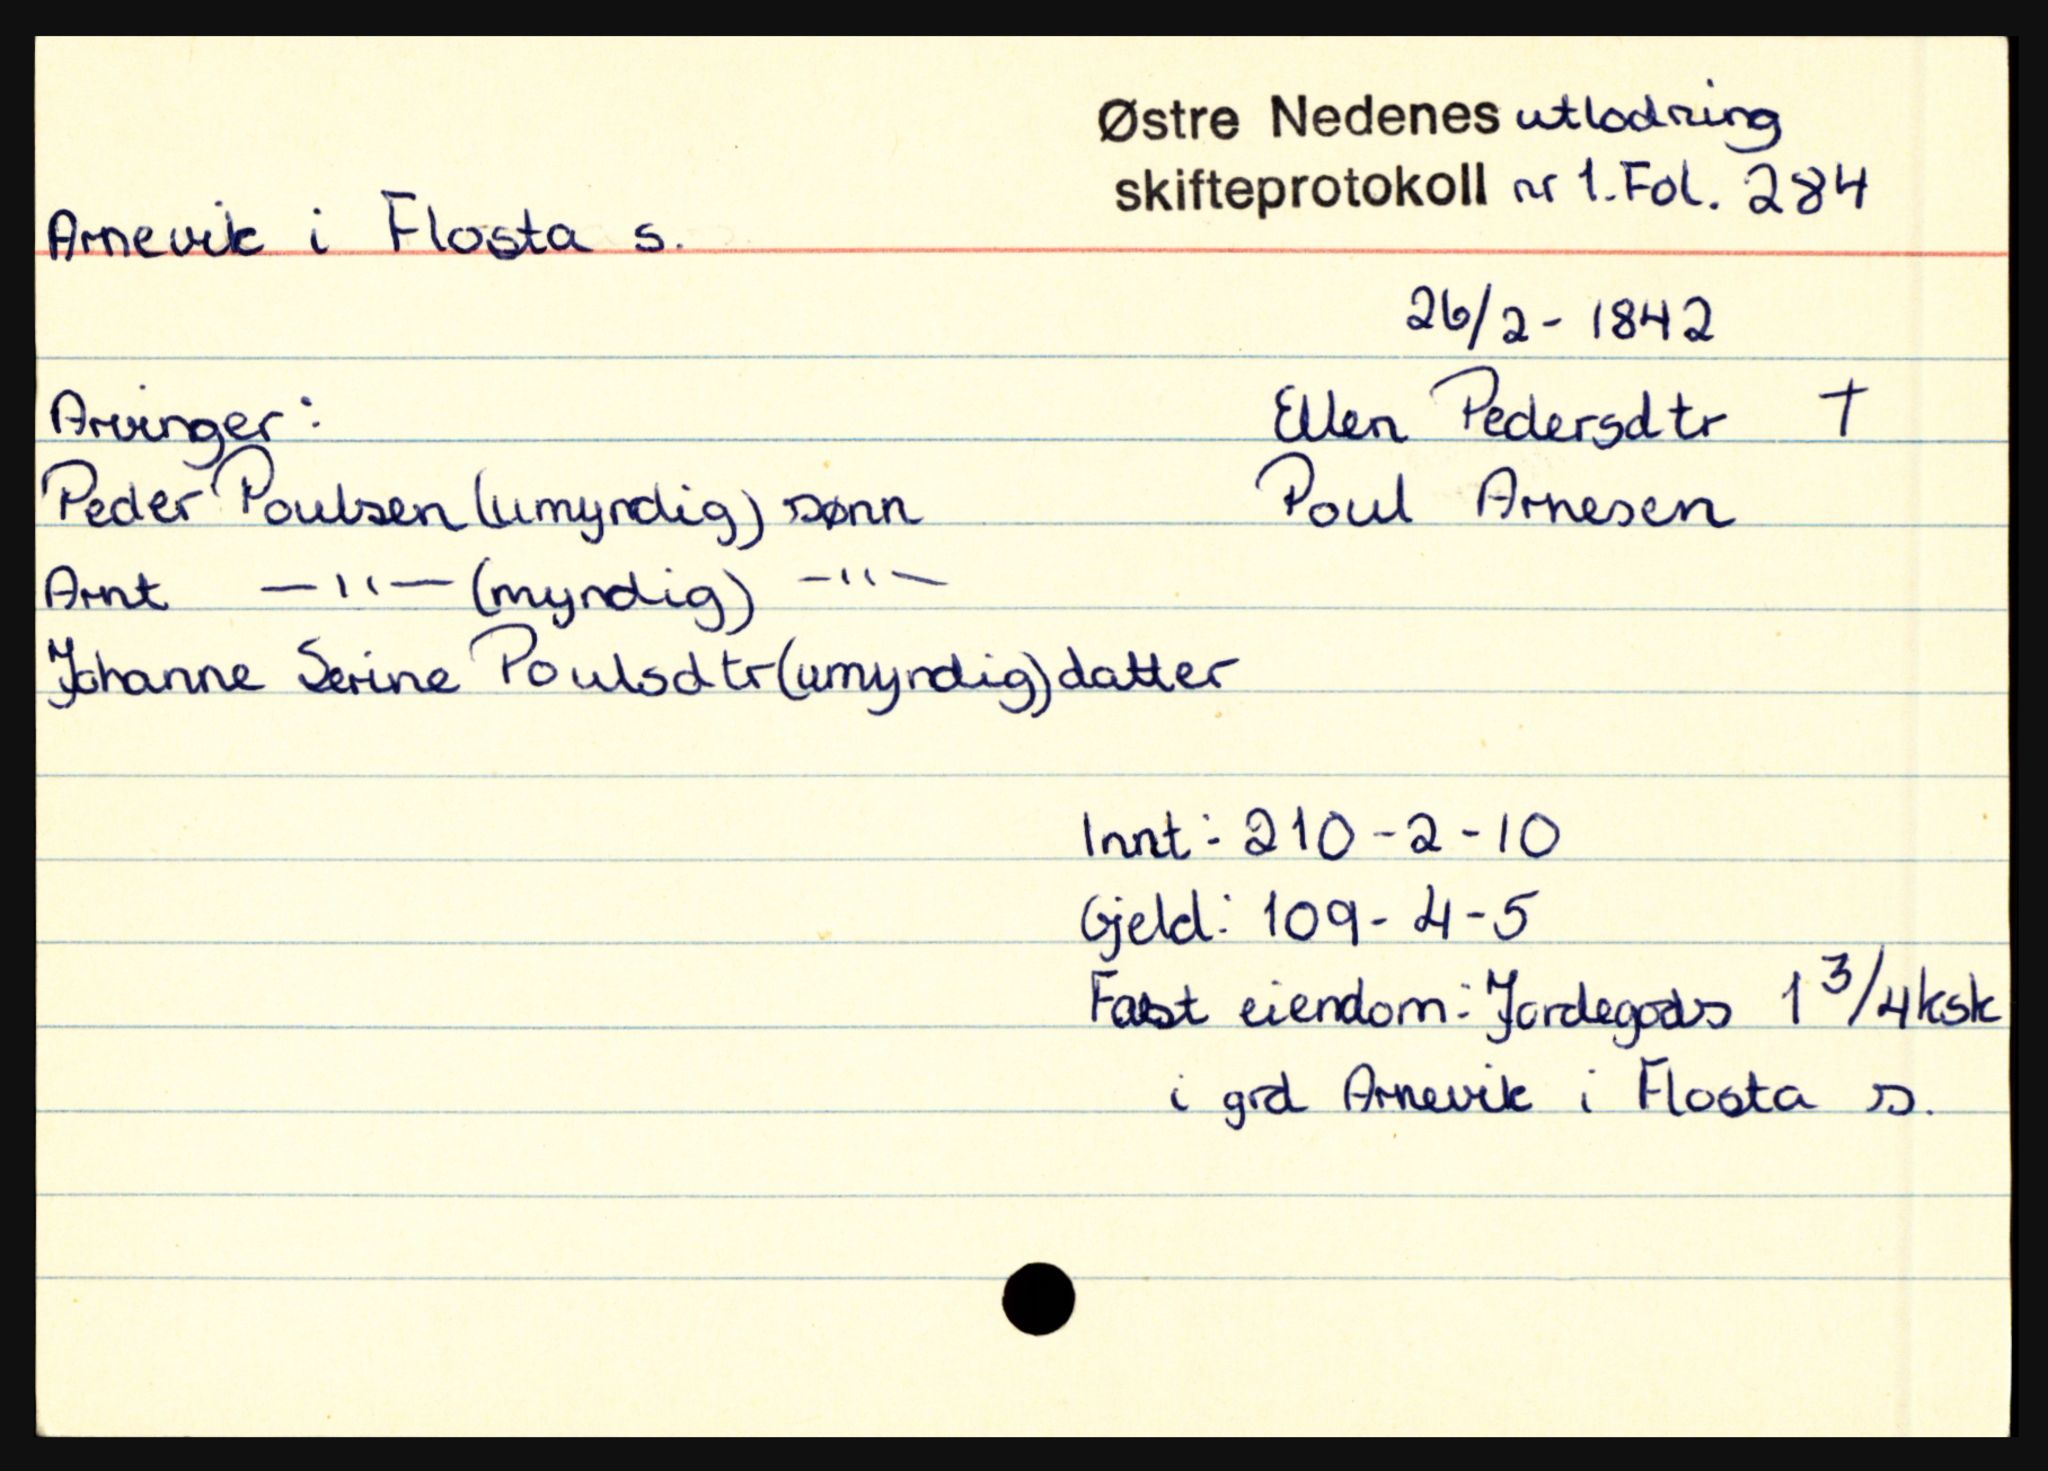 Østre Nedenes utlodning
skifteprotokoll nr 1. Fol. 284
Arnevik i Flosta s.
26/2 - 1842
Arvinger:
Ellen Pedersdtr †
Peder Poulsen (umyndig) sønn
Poul Arnesen
Arnt —"— (myndig) —"—
Johanne Serine Poulsdtr (umyndig) datter
Innt: 210 - 2 - 10
Gjeld: 109 - 4 - 5
Fast eiendom: Jordegods 1 3/4 ksk
i grd Arnevik i Flosta s.